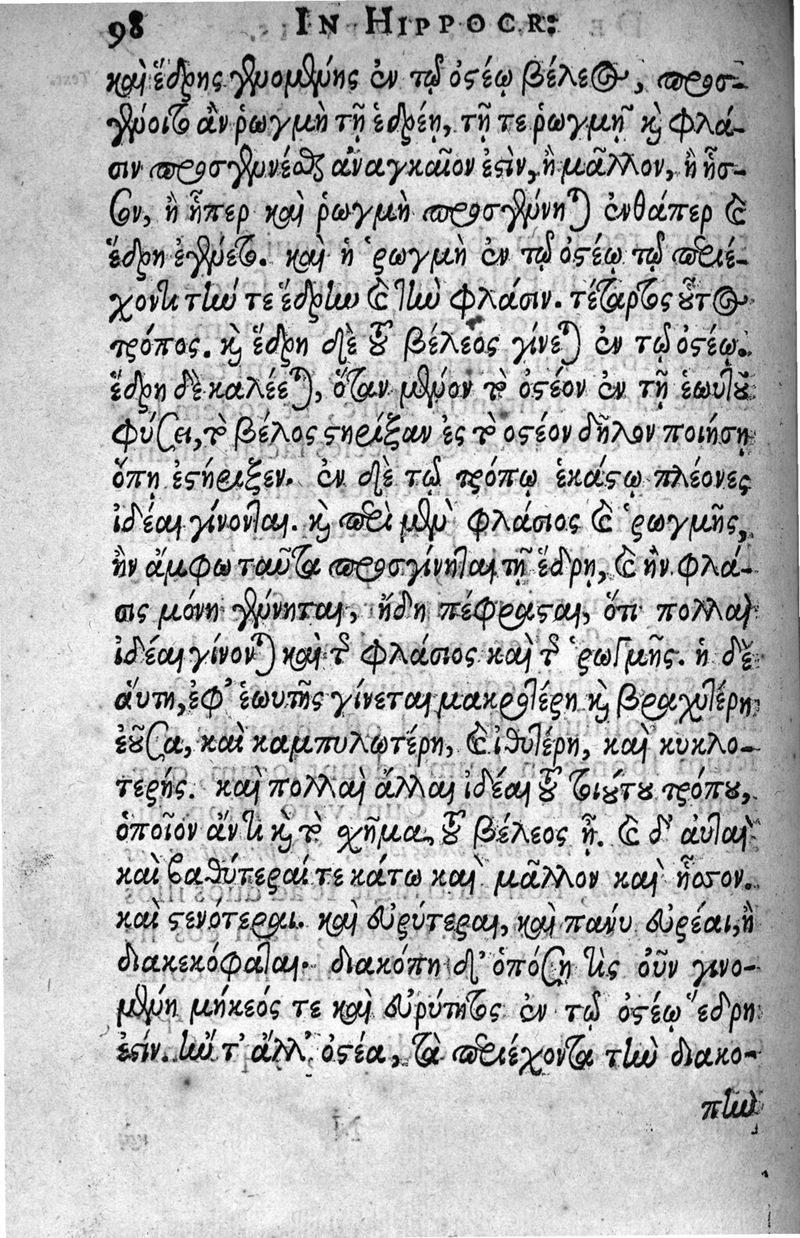 98 IN HIPPOCR:
καὶ ἕδρης γενομένης ἐν τῷ ὀστέῳ βέλεος, προσ-
γένοιτο ἂν ῥωγμὴ τῇ ἑδρέῃ, τῇ τε ῥωγμῇ κὶ φλά-
σιν προσγενέσθαι ἀναγκαῖον ἐστὶν, ἢ μᾶλλον, ἢ ἧσ-
σον, ἢ ἧπερ καὶ ῥωγμὴ προσγένηται ἐνθάπερ καὶ
ἕδρη ἐγένετο. καὶ ἡ ῥωγμὴ ἐν τῷ ὀστέῳ τῷ περιέ-
χοντι τήν τε ἕδρην καὶ τὴν φλάσιν. τέταρτος οὗτος
τρόπος. κὶ ἕδρη δὲ τοῦ βέλεος γίνεται ἐν τῷ ὀστέῳ.
ἕδρη δὲ καλέεται, ὅταν μένον τὸ ὀστέον ἐν τῇ ἑωυτοῦ
φύσει, τὸ βέλος στηρίξαν ἐς τὸ οστέον δῆλον ποιήσῃ
ὅπῃ ἐστήριξεν. ἐν δὲ τῷ τρόπῳ ἑκάστῳ πλέονες
ἰδέαι γίνονται. κὶ περὶ μὲν φλάσιος καὶ ῥωγμῆς,
ἢν ἄμφω ταῦτα προσγίνηται τῇ ἕδρῃ, καὶ ἢν φλά-
σις μόνη γένηται, ἤδη πέφρασται, ὅτι πολλαὶ
ἰδέαι γίνονται καὶ τῆς φλάσιος καὶ τῆς ῥωγμῆς. ἡ δὲ
ἁύτη, ἐφ' ἑωυτῆς γίνεται μακροτέρη κὶ βραχυτέρη
ἐοῦσα, καὶ καμπυλωτέρη, καὶ ἰθυτέρη, καὶ κυκλο-
τερής. καὶ πολλαὶ ἄλλαι ἰδέαι τοῦ τοιούτου τρόπου,
ὁποῖον ἄν τι κὶ τὸ σχῆμα τοῦ βέλεος ᾖ. καὶ δ' ἀυταὶ
καὶ βαθύτεραί τε κάτω καὶ μᾶλλον καὶ ἧσσον.
καὶ στενότεραι. καὶ εὐρύτεραι, καὶ πανυ εὐρέαι, ἢ
διακεκόφαται. διακόπη δ' ὁπόση τις οὖν γινο-
μένη μήκεός τε καὶ εὐρύτητος ἐν τῷ ὀστέῳ ἕδρη
ἐστίν. ἢν τ' ἄλλ' ὀστέα, τὰ περιέχοντα τὴν διακο-
πὴν